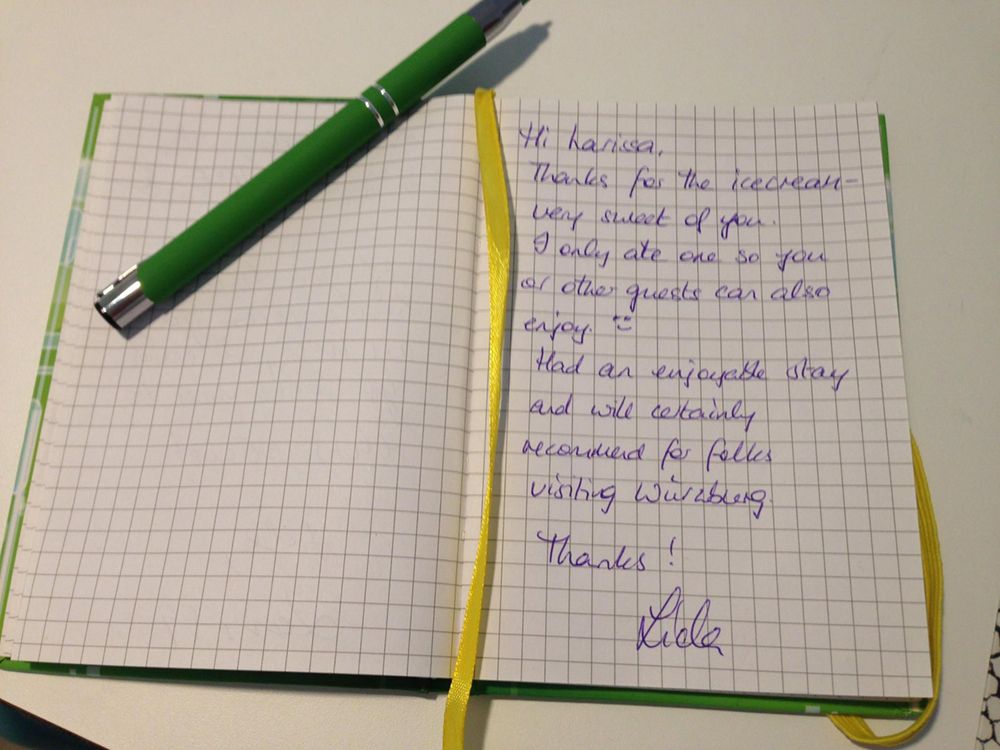 Hi Larissa,
Thanks for the icecream-
very sweet of you.
I only ate one so you
or other guests can also
enjoy. :)
Had an enjoyable stay
and will certainly
recommend for folks
visiting Würzburg.
Thanks!
Lida